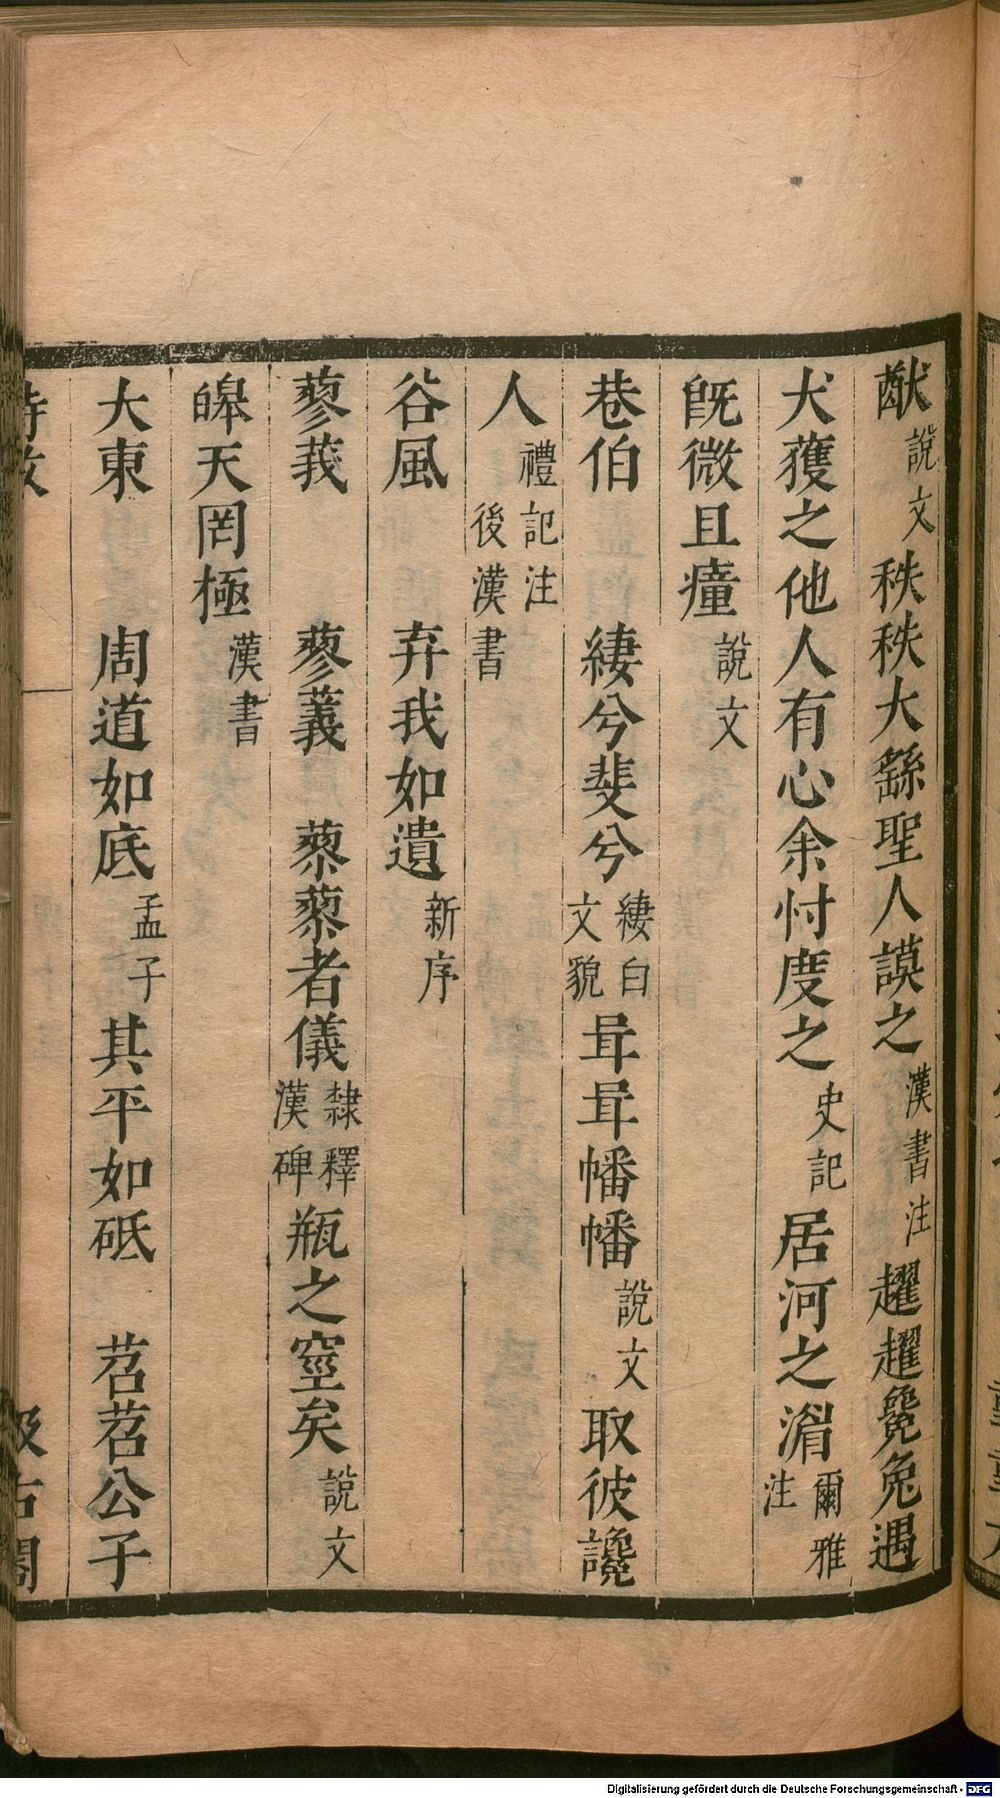 猷說文秩秩大繇聖人謨之漢書注趯趯毚兔遇
犬獲之他人有心余忖度之史記居河之湄爾雅注
旣微且瘇說文
巷伯　緀兮斐兮緀白文貌咠咠幡幡說文取彼讒
人禮記注後漢書
谷風　弃我如遺新序
蓼莪　蓼義　蓼蓼者儀隸釋漢碑瓶之窒矣說文
皞天罔極漢書
大東　周道如底孟子其平如砥　苕苕公子
Digitalisierung gefördert durch die Deutsche Forschungsgemeinschaft - DFG